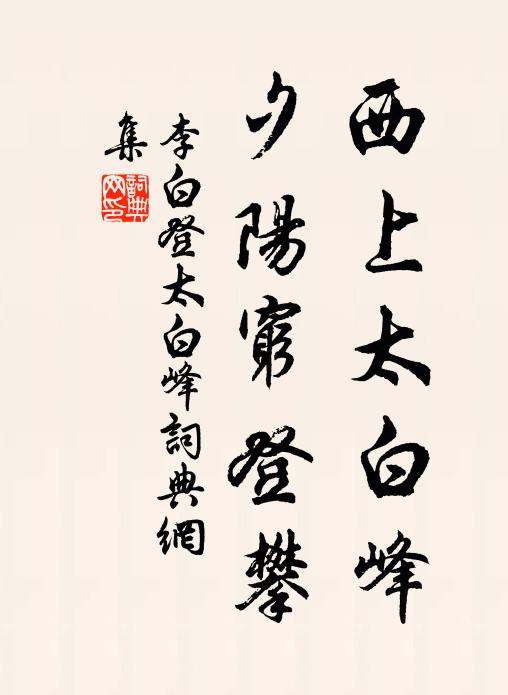 西上太白峰
夕陽窮登攀
李白登太白峰詞典網
集
詞典
网印